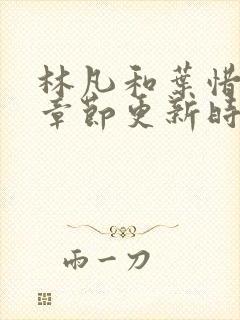 林凡和葉惜
章節更新時
雨一刀